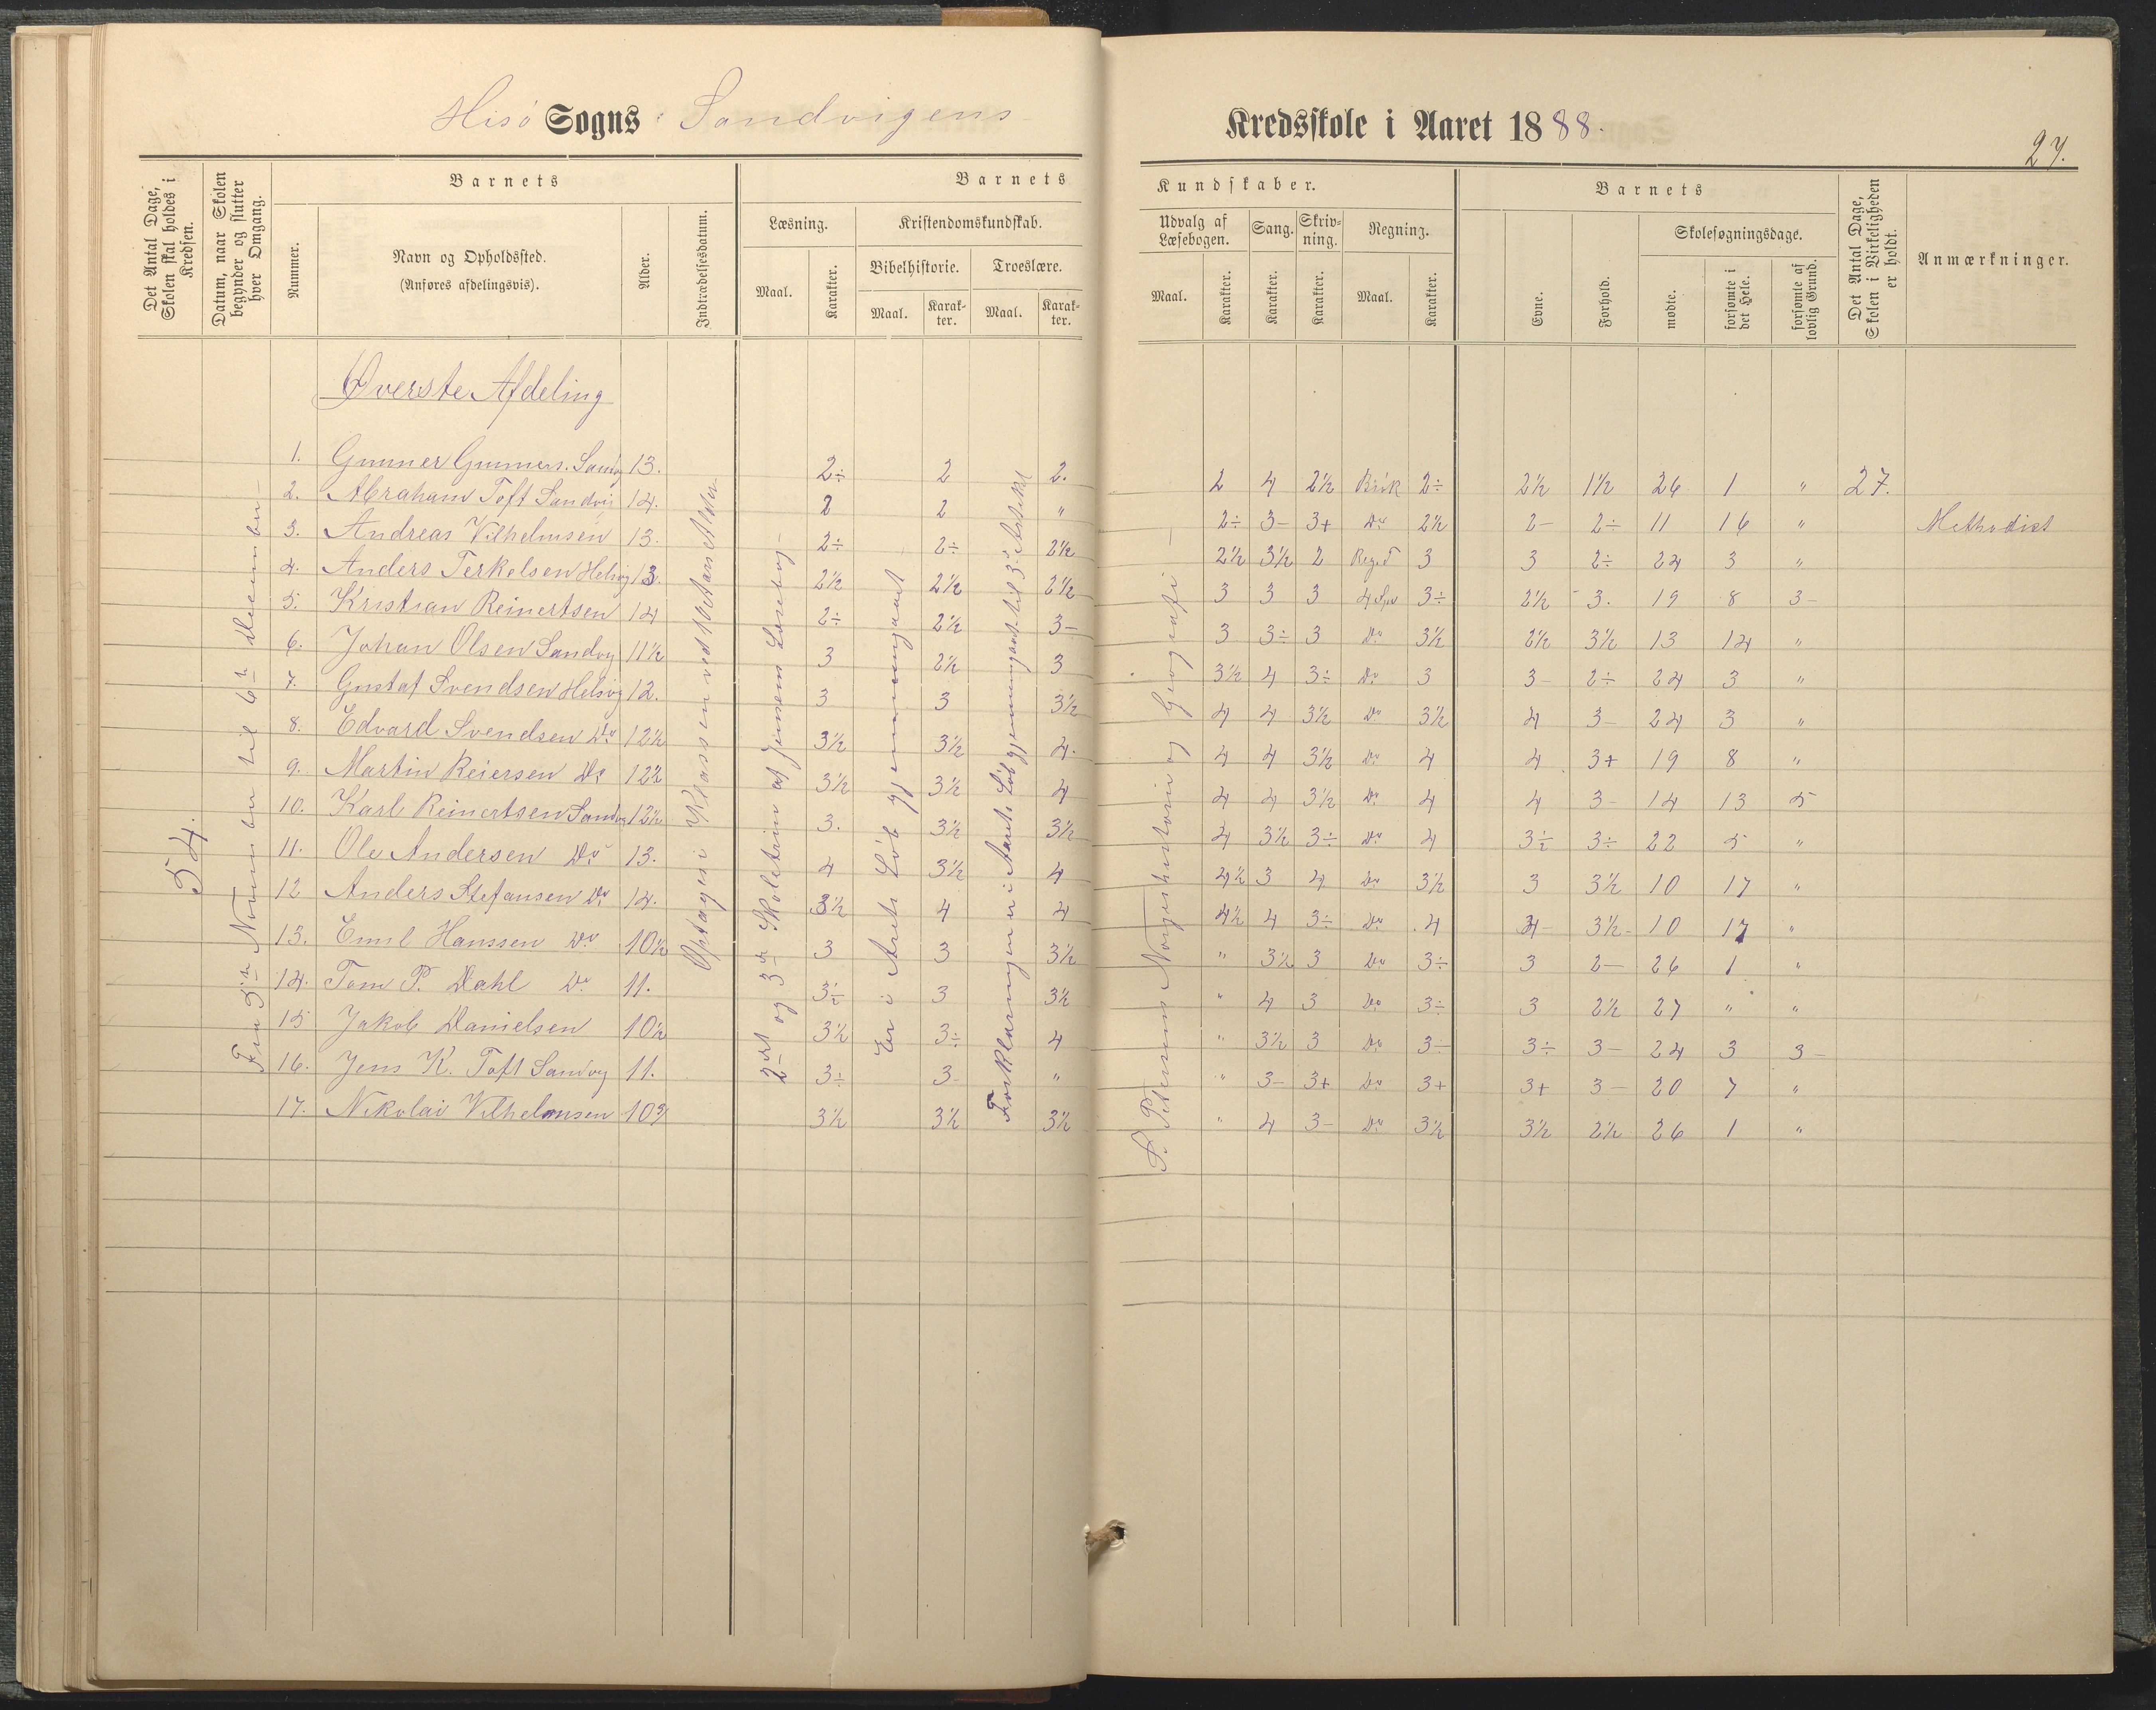 Hisö Sogns Sandvigens Kredsskole i Aaret 1888.
27.
Det Antal Dage, Skolen skal holdes i Kredsen.
Datum, naar Skolen begynder og slutter hver Omgang.
Barnets
Nummer.
Navn og Opholdssted.
(Anføres afdelingsvis).
Alder.
Indtrædelsesdatum.
Barnets Kundskaber.
Læsning.
Maal.
Karakter.
Kristendomskundskab.
Bibelhistorie.
Maal.
Karakter.
Troeslære.
Maal.
Karakter.
Udvalg af Læsebogen.
Maal.
Karakter.
Sang.
Karakter.
Skrivning.
Karakter.
Regning.
Maal.
Karakter.
Barnets
Evne.
Forhold.
Skolesøgningsdage.
mødte.
forsømte i det Hele.
forsømte af lovlig Grund.
Det Antal Dage, Skolen i Virkeligheden er holdt.
Anmærkninger.
Øverste Afdeling
54.
Fra 5te November til 6te December
Optages i Klassen ved 10 Aars Alder
2det og 3die Skoletrin af Jensens Læsebog
Er i Arets Løb gjennemgaaet
Forklaringen er i Aarets Løb gjennemgaaet til 3. Artikel
S. Petersens Norgeshistorie og Geografi
1. Gunner Gunners. Sandvg 13. 2÷ 2 2. 2 4 2½ Brök 2÷ 2½ 1½ 26 1 " 27.
2. Abraham Toft Sandvig 14. 2 2 " 2÷ 3- 3+ Do 2½ 2- 2÷ 11 16 " Methodist
3. Andreas Vilhelmsen 13. 2÷ 2÷ 2½ 2½ 3½ 2 Reg.d 3 3 2÷ 24 3 "
4. Anders Terkelsen Helsvig 13. 2½ 2½ 2½ 3 3 3 4 Spe 3÷ 2½ 3. 19 8 3-
5. Kristian Reinertsen 14 2÷ 2½ 3- 3 3÷ 3 Do 3½ 2½ 3½ 13 14 "
6. Johan Olsen Sandvg 11½ 3 2½ 3 3½ 4 3÷ Do 3 3- 2÷ 24 3 "
7. Gustaf Svendsen Helsvig 12. 3 3 3½ 4 4 3½ Do 3½ 4 3- 24 3 "
8. Edvard Svendsen Do 12½ 3½ 3½ 4. 4 4 3½ Do 4 4 3+ 19 8 "
9. Martin Reiersen Do 12½ 3½ 3½ 4 4 4 3½ Do 4 4 3- 14 13 5
10. Karl Reinertsen Sandvg 12½ 3. 3½ 3½ 4 3½ 3÷ Do 4 3÷ 3÷ 22 5 "
11. Ole Andersen Do 13. 4 3½ 4 4½ 3 4 Do 3½ 3 3½ 10 17 "
12 Anders Stefansen Do 14. 3½ 4 4 4½ 4 3÷ Do 4 4- 3½- 10 17 "
13. Emil Hanssen Do 10½ 3 3 3½ " 3½ 3 Do 3÷ 3 2- 26 1 "
14. Tom P. Dahl Do 11. 3÷ 3 3½ " 4 3 Do 3÷ 3 2½ 27 " "
15 Jakob Danielsen 10½ 3½ 3÷ 4 " 3½ 3 Do 3- 3÷ 3- 24 3 3-
16. Jens K. Toft Sandvg 11. 3÷ 3- " " 3- 3+ Do 3+ 3+ 3- 20 7 "
17. Nikolai Vilhelmsen 10¾ 3½ 3½ 3½ " 4 3- Do 3½ 3½ 2½ 26 1 "